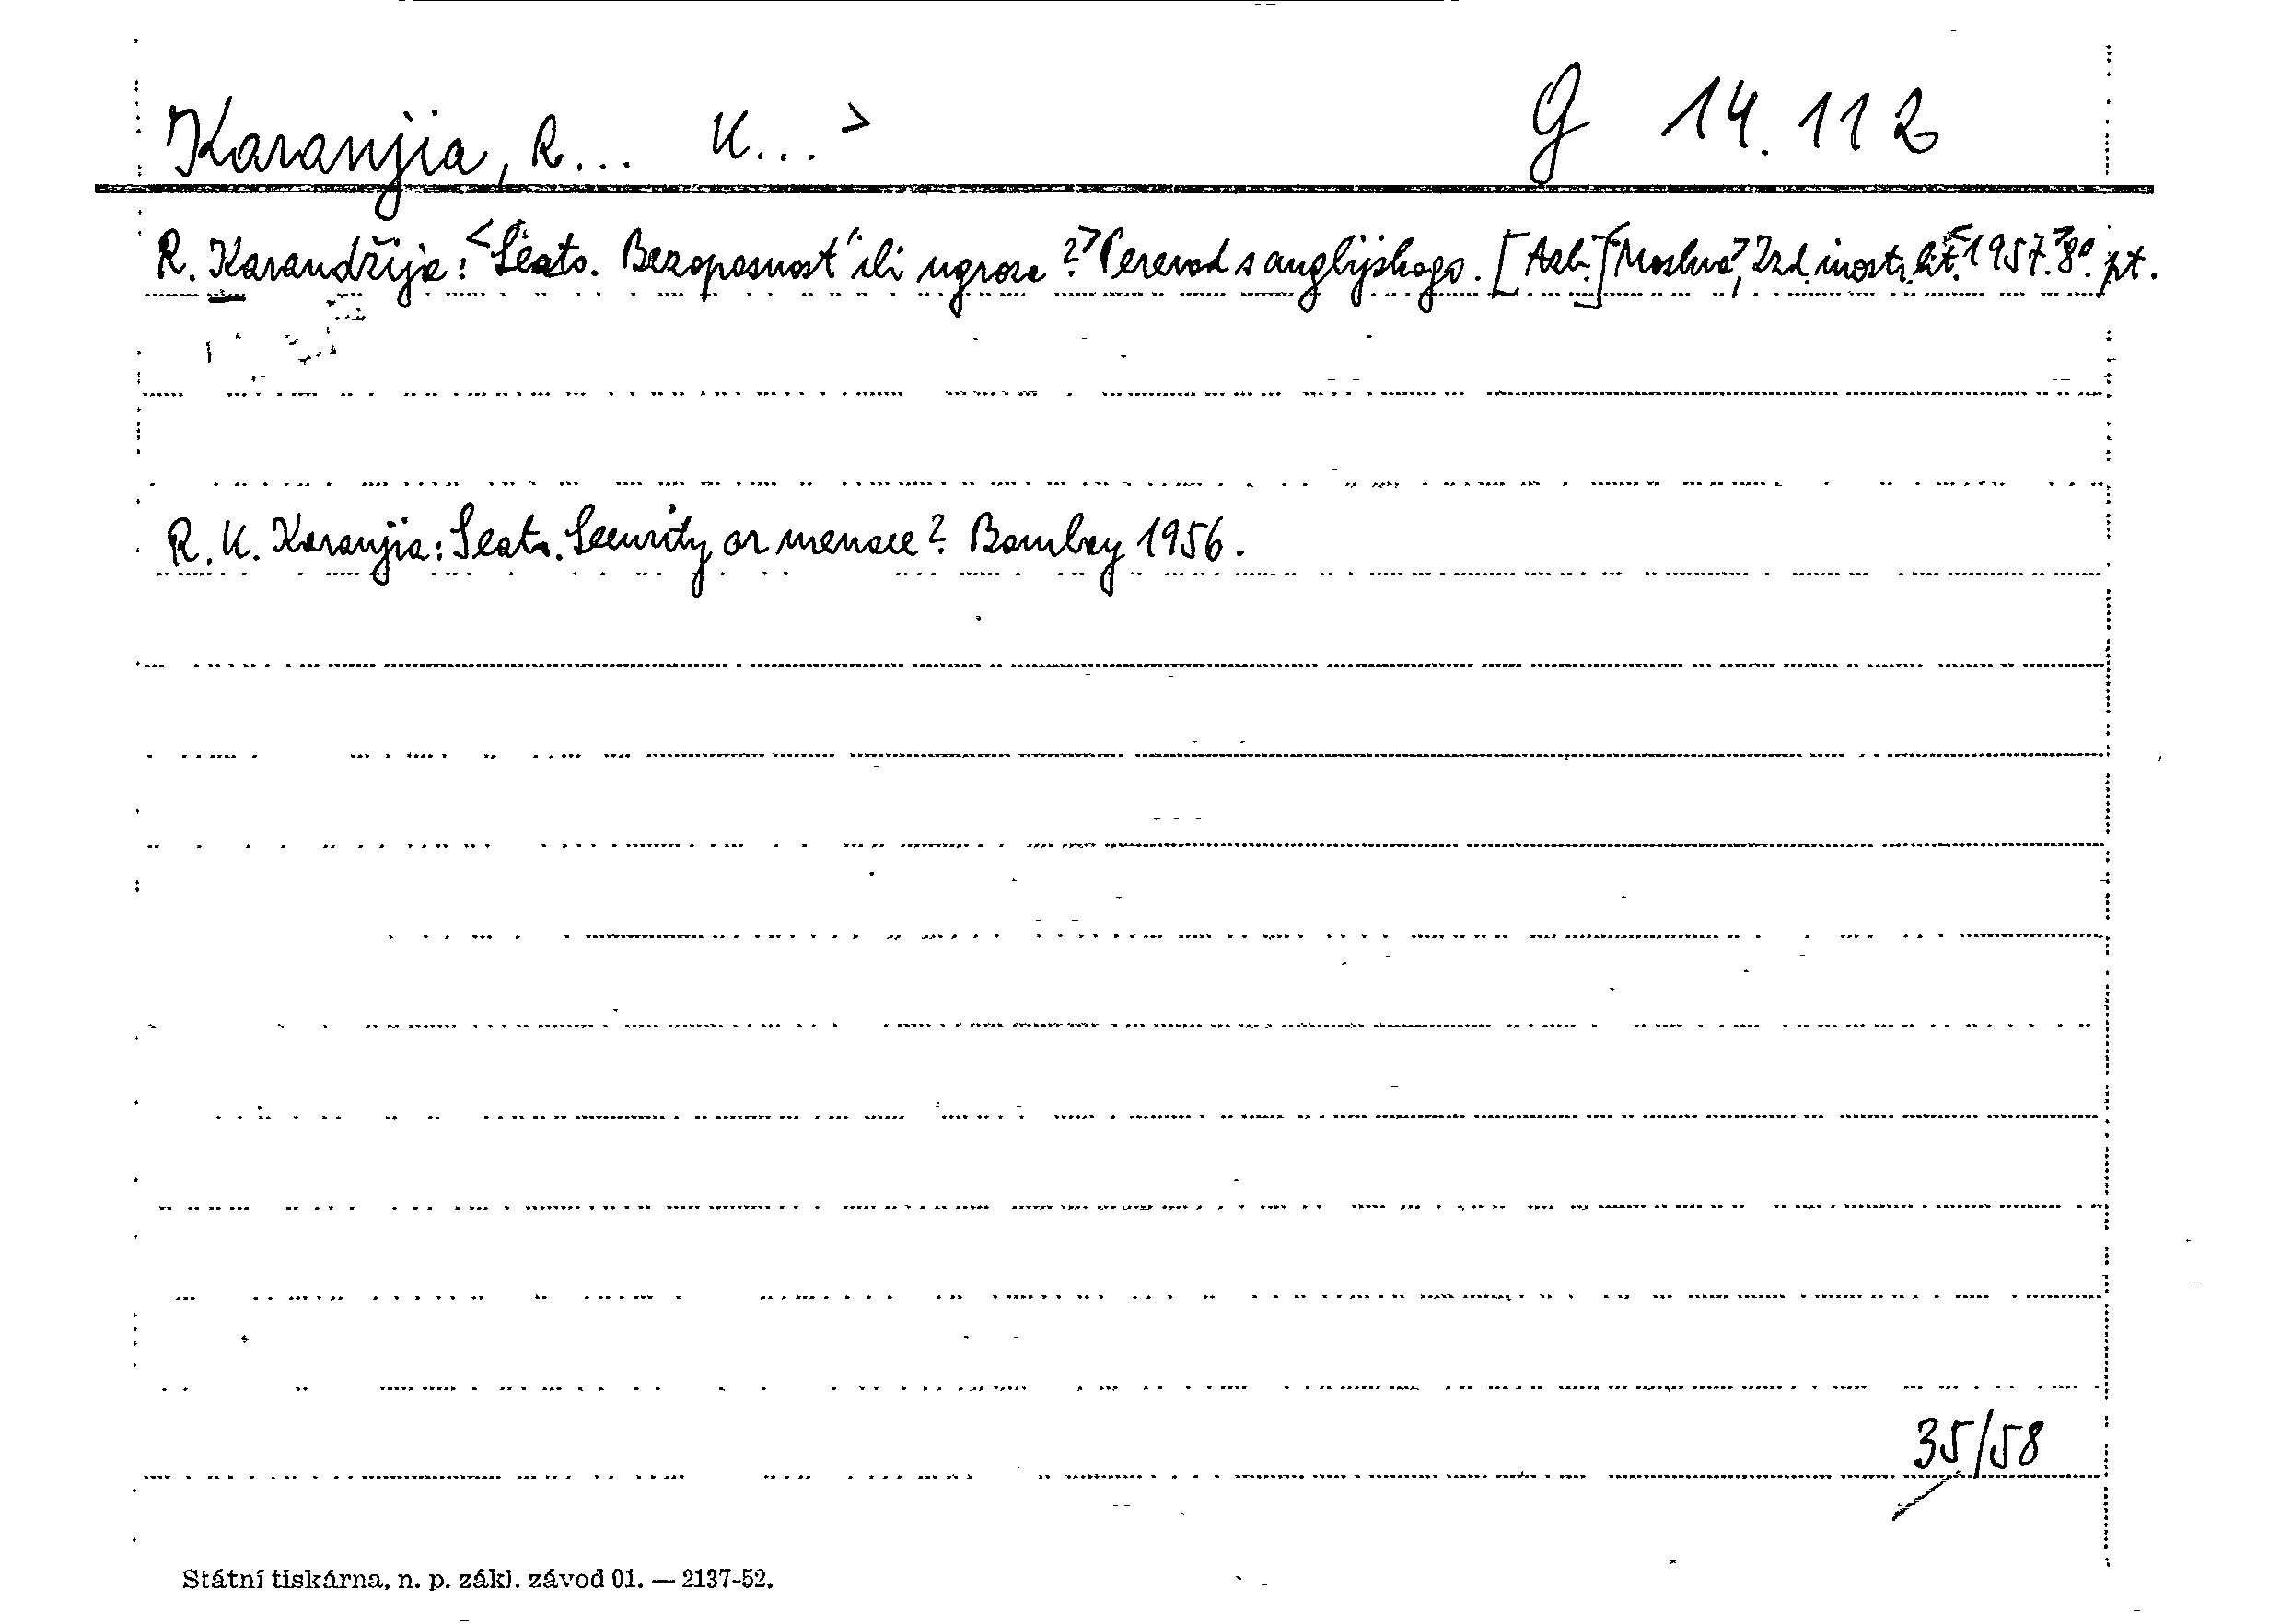 Karanjia, R... K...> G 14.112
R. Karandžija: <Seato. Bezopasnost' ili ugroza?> Perevod s anglijskogo. [Azb.] <Moskva>, Izd. inostr. lit. <1957.> 8°. pt.
R. K. Karanjia: Seato. Security or menace? Bombay 1956.
35/58
Státní tiskárna, n. p. zákl. závod 01. — 2137-52.